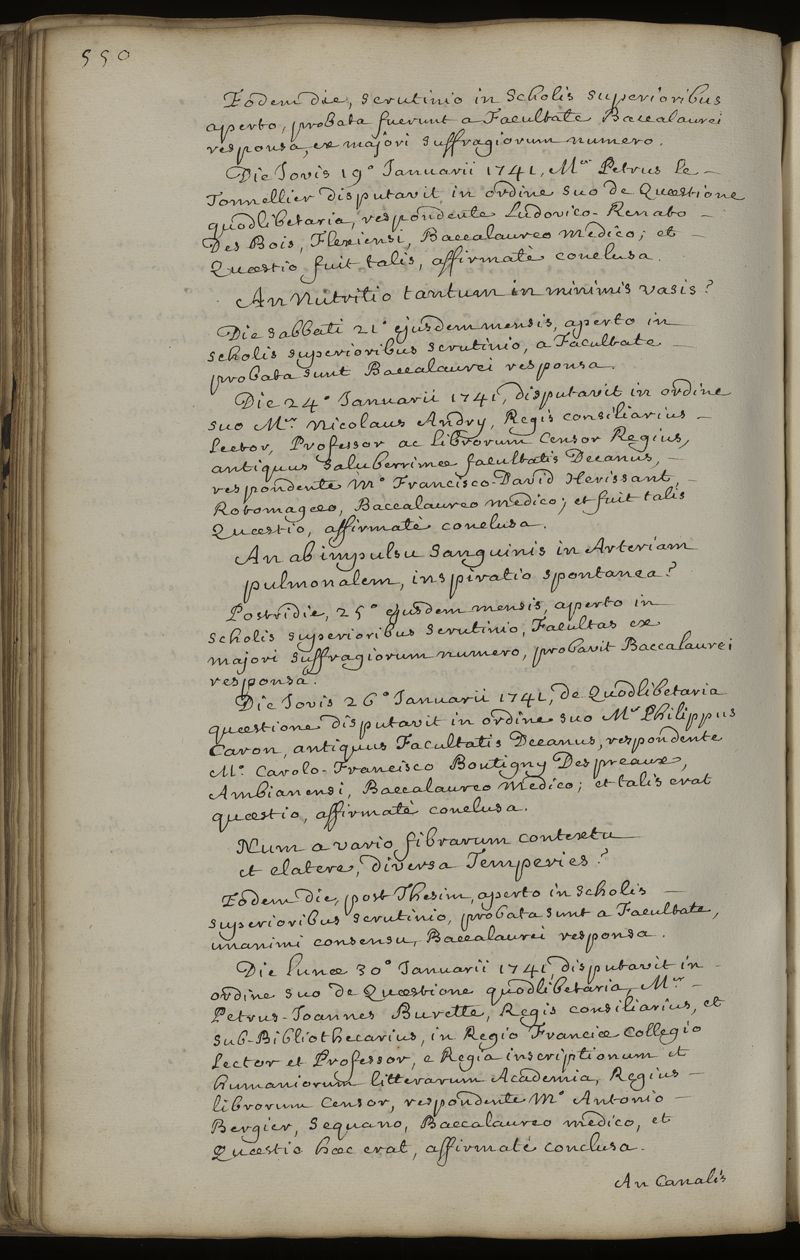 550
Eodem die, scrutinio in Scholis superioribus
aperto, probata fuerunt a Facultate Baccalaurei
responsa, ex majori suffragiorum numero.
Die Jovis 19° Januarii 1741, M.er Petrus le —
Tonnellier disputavit in ordine suo de Quæstione
quodlibetaria, respondente Ludovico-Renato —
Des Bois, Flexiensi, Baccalaureo medico; et —
Quæstio fuit talis, affirmatè conclusa.
An Nutritio tantum in minimis vasis?
Die sabbati 21° ejusdem mensis, aperto in
scholis superioribus scrutinio, a Facultate —
probata sunt Baccalaurei responsa.
Die 24° Januarii 1741, disputavit in ordine
suo M.er Nicolaus Andry, Regis consiliarius —
Lector, Professor ac librorum Censor Regius,
antiquus saluberrimæ facultatis Decanus, —
respondente M.o Francisco-David Herissant, —
Rotomagæo, Baccalaureo medico; et fuit talis
Quæstio, affirmatè conclusa.
An ab impulsu sanguinis in Arteriam
pulmonalem, inspiratio spontanea?
Postridie, 25° ejusdem mensis, aperto in
scholis superioribus scrutinio, Facultas ex
majori suffragiorum numero, probavit Baccalaurei
responsa.
Die Jovis 26° Januarii 1741, de Quodlibetaria
quæstione disputavit in ordine suo M.r Philippus
Caron, antiquus Facultatis Decanus, respondente
M.o Carolo-Francisco Boutigny Despreaux,
Ambianensi, Baccalaureo medico; et talis erat
quæstio, affirmatè conclusa.
Num a vario fibrarum contextu —
et elatere, diversa Temperies?
Eodem die, post Thesim, aperto in scholis —
superioribus scrutinio, probata sunt a Facultate,
unanimi consensu, Baccalaurei responsa.
Die lunæ 30° Januarii 1741, disputavit in —
ordine suo de Quæstione quodlibetaria, M.er —
Petrus-Joannes Burette, Regis consiliarius, et
sub-Bibliothecarius, in Regio Franciæ Collegio
Lector et Professor, e Regia inscriptionum et
humaniorum litterarum Academia, Regius —
librorum Censor, respondente M.o Antonio —
Bergier, Sequano, Baccalaureo medico, et
Quæstio hæc erat, affirmatè conclusa.
An Canalis